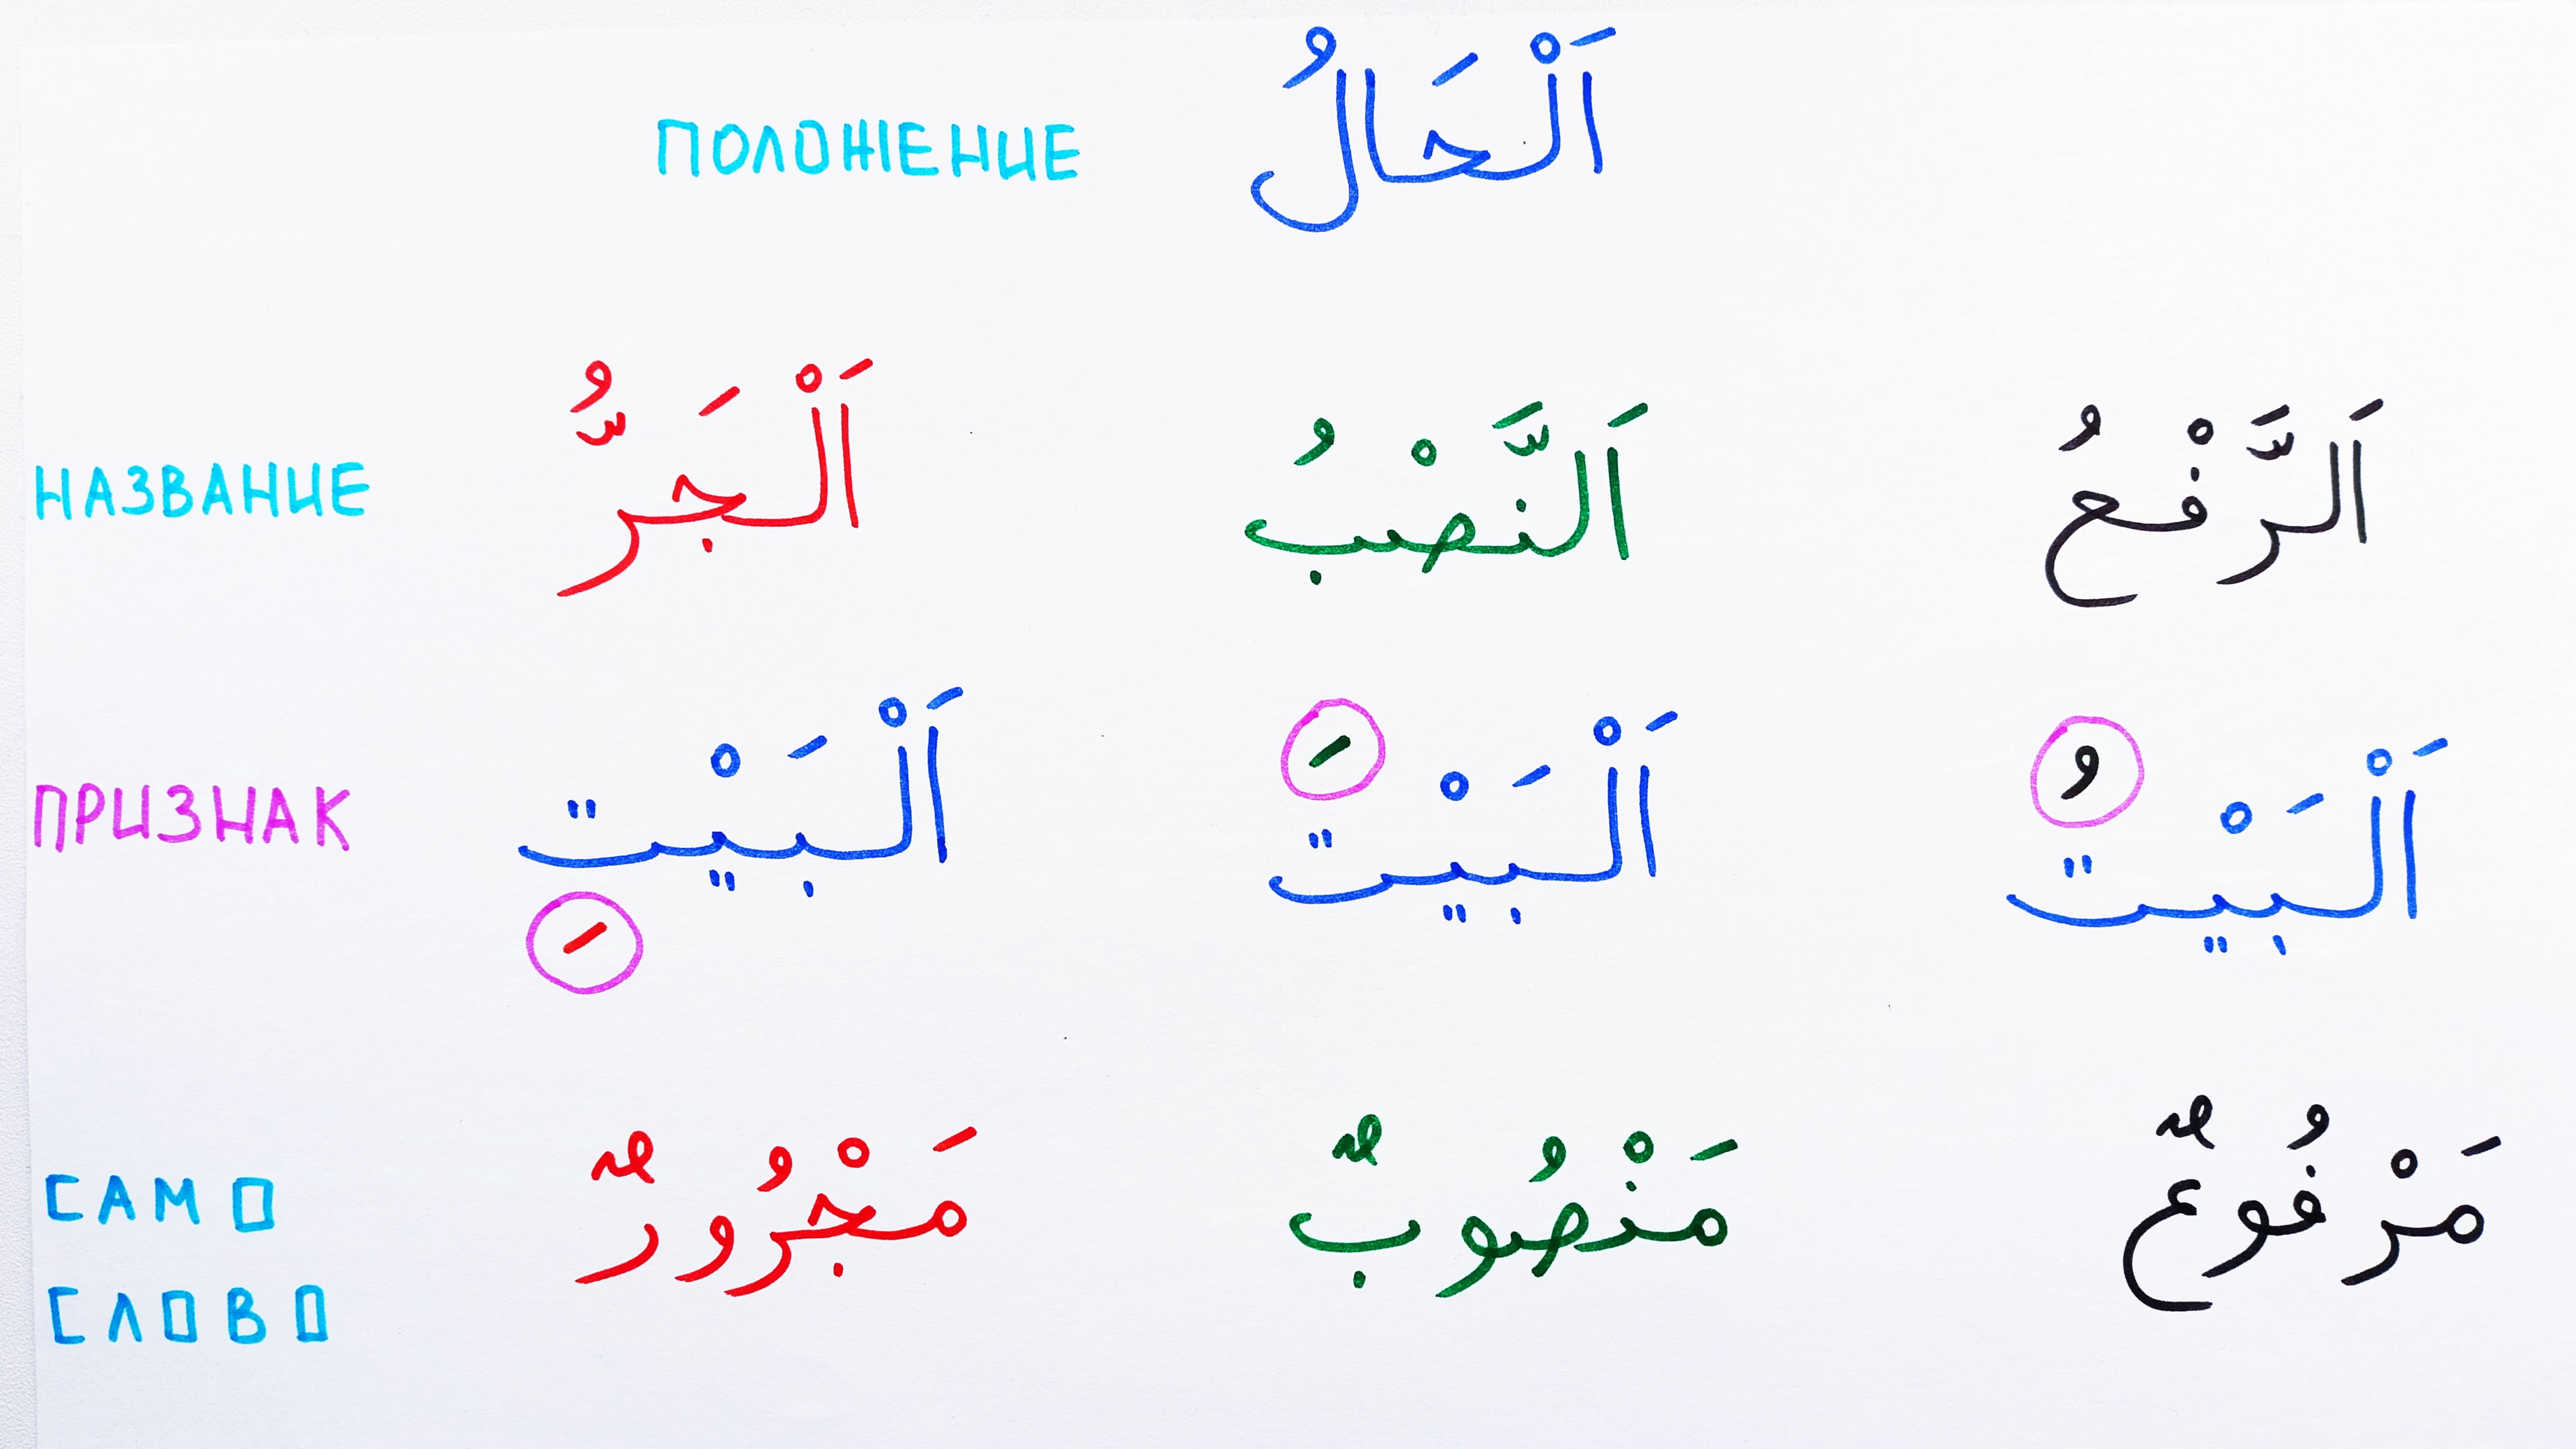 ПОЛОЖЕНИЕ اَلْحَالُ
НАЗВАНИЕ اَلْجَرُّ اَلنَّصْبُ اَلرَّفْعُ
ПРИЗНАК اَلْبَيْتِ اَلْبَيْتَ اَلْبَيْتُ
САМО مَجْرُورٌ مَنْصُوبٌ مَرْفُوعٌ
СЛОВО